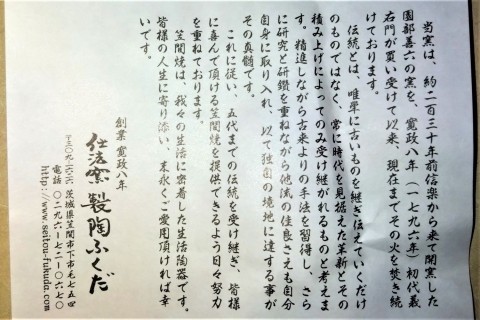 当窯は、約二百三十年前信楽から来て開窯した
園部善六の窯を、寛政八年(一七九六年)初代義
右門が買い受けて以来、現在までその火を焚き続
けております。
伝統とは、唯単に古いものを継ぎ伝えていくだけ
のものではなく、常に時代を見据えた革新とその
積み上げによってのみ受け継がれるものと考えま
す。精進しながら古来よりの手法を習得し、さら
に研究と研鑽を重ねながら他流の佳良さえも自分
自身に取り入れ、以て独自の境地に達する事が
その真髄です。
これに従い、五代までの伝統を受け継ぎ、皆様
に喜んで頂ける笠間焼を提供できるよう日々努力
を重ねております。
笠間焼は、我々の生活に密着した生活陶器です。
皆様の人生に寄り添い、末永くご愛用頂ければ幸
いです。
創業 寛政八年
製陶ふくだ
茨城県笠間市下市毛七五四
電話 〇二九六-七二-〇六七〇
http://www.seitou-fukuda.com